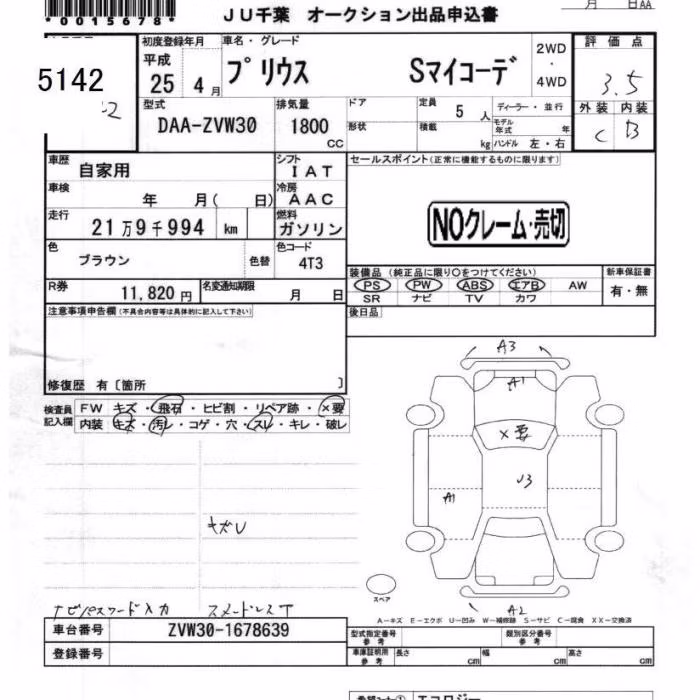 *0015678*
JU千葉 オークション出品申込書
月 日AA
5142
初度登録年月
平成
25 4月
車名・グレード
プリウス Sマイコーデ
2WD
・
4WD
評価点
3.5
外装 内装
C B
型式
DAA-ZVW30
排気量
1800
CC
ドア
形状
定員 5 人
積載 kg
ディーラー・並行
モデル年式 年
ハンドル 左・右
車歴
自家用
シフト
IAT
車検
年 月( 日)
冷房
AAC
走行
21万9千994 km
燃料
ガソリン
色
ブラウン
色替
色コード
4T3
R券
11,820円
名変通知期限
月 日
セールスポイント(正常に機能するものに限ります)
NOクレーム・売切
装備品 (純正品に限り○をつけてください)
PS PW ABS エアB AW
SR ナビ TV カワ
新車保証書
有・無
後日品
注意事項申告欄(不具合内容等は具体的に記入して下さい)
修復歴 有〔箇所 〕
検査員記入欄
FW キズ・飛石・ヒビ割・リペア跡・×要
内装 キズ・汚レ・コゲ・穴・スレ・キレ・破レ
A3
A1
×要
A1
A2
スペア
キズU
ナビパスワード入力
A-キズ E-エクボ U-凹み W-補修跡 S-サビ C-腐食 XX-交換済
車台番号
ZVW30-1678639
登録番号
型式指定番号
参考
類別区分番号
参考
車庫証明用
参考
長さ cm
幅 cm
高さ cm
エコロジー